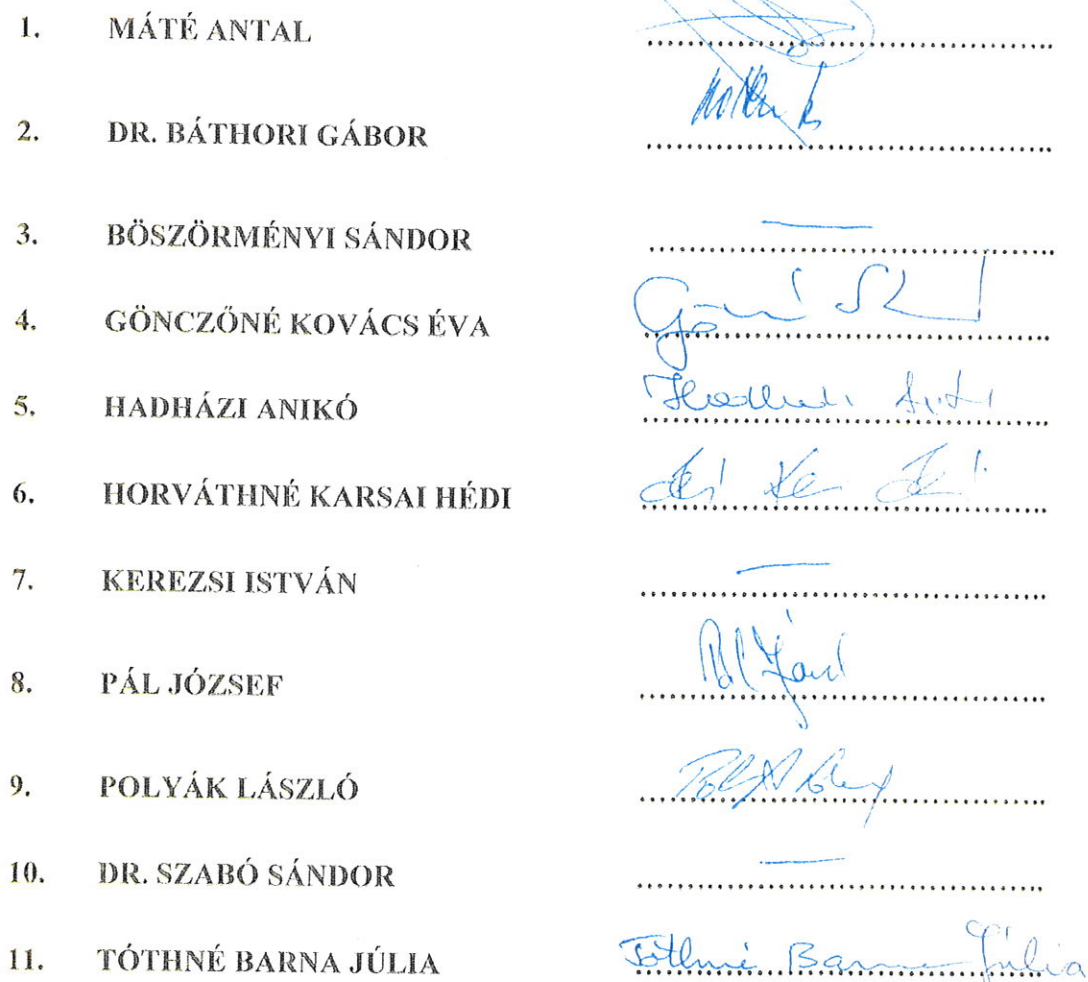 1. MÁTÉ ANTAL ........................................
2. DR. BÁTHORI GÁBOR ........................................
3. BÖSZÖRMÉNYI SÁNDOR ........................................
4. GÖNCZŐNÉ KOVÁCS ÉVA ........................................
5. HADHÁZI ANIKÓ ........................................
6. HORVÁTHNÉ KARSAI HÉDI ........................................
7. KEREZSI ISTVÁN ........................................
8. PÁL JÓZSEF ........................................
9. POLYÁK LÁSZLÓ ........................................
10. DR. SZABÓ SÁNDOR ........................................
11. TÓTHNÉ BARNA JÚLIA Tóthné Barna Júlia